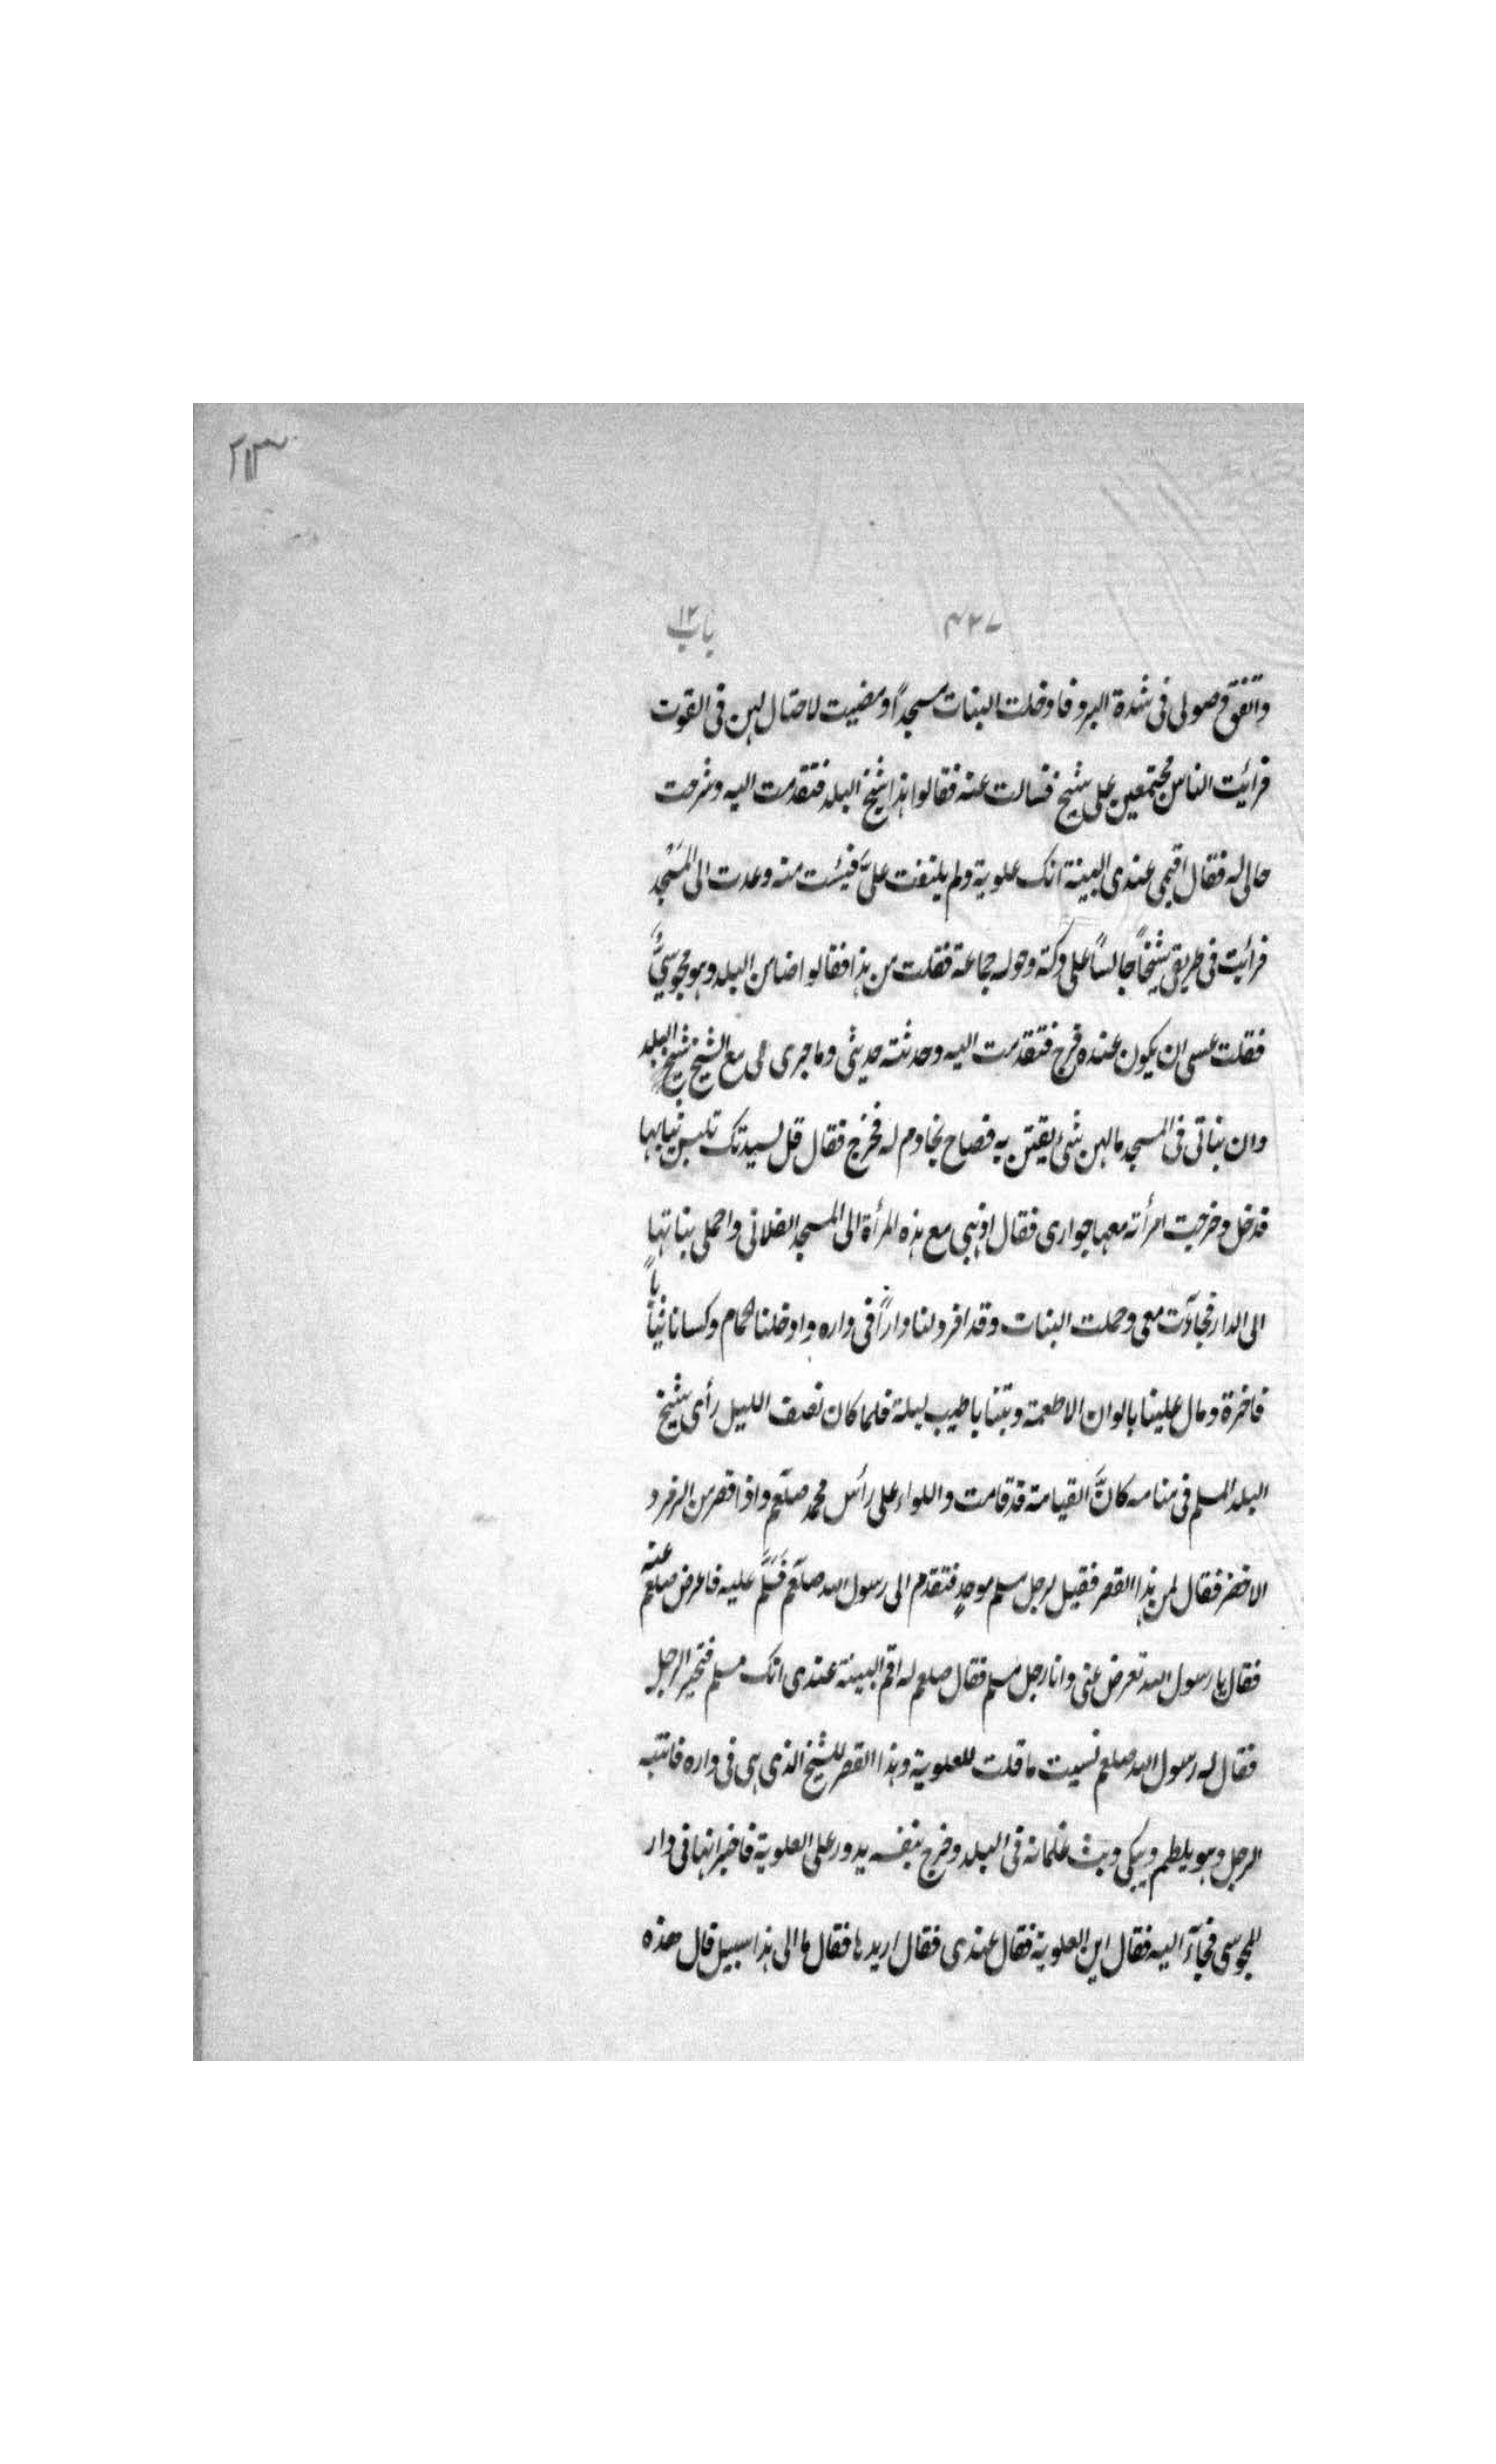 ٢١٣
٤٢٧ باب ١٢
واتفق وصولى فى شدة البرد فادخلت البنات مسجداً ومضيت لاحتال لهن فى القوت
فرأيت الناس مجتمعين على شيخ فسالت عنه فقالوا هذا شيخ البلد فتقدمت اليه وشرحت
حالى له فقال اقيمى عندى البينة انك علوية ولم يلتفت علىَّ فيئست منه وعدت الى المسجد
فرأيت فى طريقى شيخاً جالساً على دكة وحوله جماعة فقلت من هذا فقالوا ضامن البلد وهو مجوسيٌّ
فقلت عسى ان يكون عنده فرج فتقدمت اليه وحدثته حديثى وما جرى لى مع الشيخ شيخ البلد
وان بناتى فى المسجد ما لهن شئ يقتتن به فصاح بخادم له فخرج فقال قل لسيدتك تلبس ثيابها
فدخل وخرجت امرأته معها جوارى فقال اذهبى مع هذه المرأة الى المسجد الفلانى واحملى بناتها
الى الدار فجاءت معى وحملت البنات وقد افرد لنا داراً فى داره وادخلنا الحمام وكسانا ثياباً
فاخرة ومال علينا بالوان الاطعمة وبتنا باطيب ليلة فلما كان نصف الليل رأى شيخ
البلد المسلم فى منامه كانَّ القيامة قد قامت واللواء على رأس محمد صلعم واذا قصر من الزمرد
الاخضر فقال لمن هذا القصر فقيل لرجل مسلم موحدٍ فتقدم الى رسول الله صلعم فَسَلَّمَ عليه فاعرض صلعم عنه
فقال يا رسول الله تعرض عنى وانا رجل مسلم فقال صلعم له اقم البينة عندى انك مسلم فتحير الرجل
فقال له رسول الله صلعم نسيت ما قلت للعلوية وهذا القصر للشيخ الذى هى فى داره فانتبه
الرجل وهو يلطم ويبكى وبث غلمانه فى البلد وخرج بنفسه يدور على العلوية فاخبر انها فى دار
المجوسى فجاء اليه فقال اين العلوية فقال عندى فقال اريدها فقال ما الى هذا سبيل قال هذه